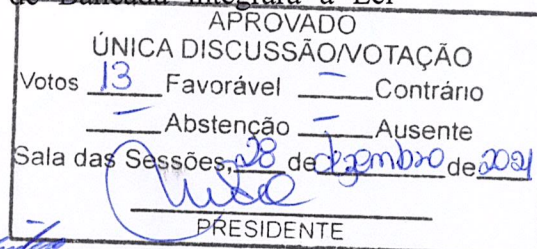 de Bancada integrará a Lei
APROVADO
ÚNICA DISCUSSÃO/VOTAÇÃO
Votos 13 Favorável — Contrário
— Abstenção — Ausente
Sala das Sessões, 28 de dezembro de 2021
PRESIDENTE